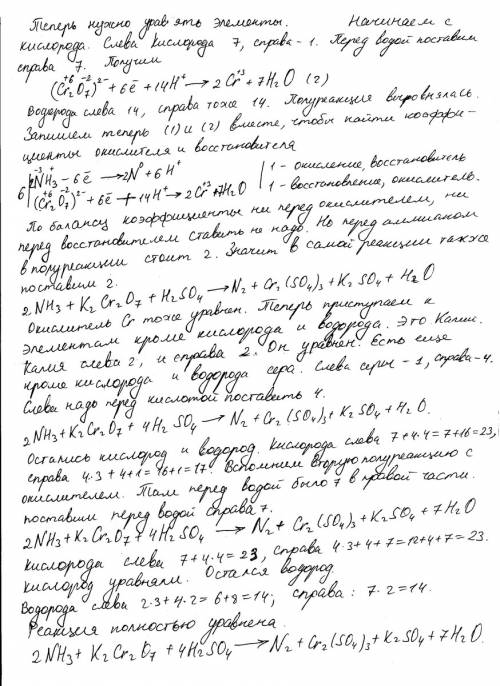 Теперь нужно уравнять элементы. Начинаем с
кислорода. Слева кислорода 7, справа - 1. Перед водой поставим
справа 7. Получим
(Cr₂⁺⁶O₇⁻²)²⁻ + 6ē + 14H⁺ → 2Cr⁺³ + 7H₂O (2)
Водорода слева 14, справа тоже 14. Полуреакция выровнялась.
Запишем теперь (1) и (2) вместе, чтобы найти коэффи-
циенты окислителя и восстановителя
6 | 2N⁻³H₃⁺ - 6ē → 2N⁰ + 6H⁺ | 1 - окисление, восстановитель
(Cr₂⁺⁶O₇⁻²)²⁻ + 6ē + 14H⁺ → 2Cr⁺³ + 7H₂O | 1 - восстановление, окислитель.
По балансу коэффициенты ни перед окислителем, ни
перед восстановителем ставить не надо. Но перед аммиаком
в полуреакции стоит 2. Значит в самой реакции также
поставим 2.
2NH₃ + K₂Cr₂O₇ + H₂SO₄ → N₂ + Cr₂(SO₄)₃ + K₂SO₄ + H₂O
Окислитель Cr тоже уравнен. Теперь приступаем к
элементам кроме кислорода и водорода. Это Калий.
Калия слева 2, и справа 2. Он уравнен. Есть еще
кроме кислорода и водорода сера. Слева серы - 1, справа - 4.
Слева надо перед кислотой поставить 4.
2NH₃ + K₂Cr₂O₇ + 4H₂SO₄ → N₂ + Cr₂(SO₄)₃ + K₂SO₄ + H₂O.
Остались кислород и водород. Кислорода слева 7+4·4=7+16=23,
справа 4·3+4+1=16+1=17. Вспомним вторую полуреакцию с
окислителем. Там перед водой было 7 в правой части.
поставим перед водой справа 7.
2NH₃ + K₂Cr₂O₇ + 4H₂SO₄ → N₂ + Cr₂(SO₄)₃ + K₂SO₄ + 7H₂O
Кислорода слева 7+4·4=23, справа 4·3+4+7=12+4+7=23.
Кислород уравняли. Остался водород.
Водорода слева 2·3+4·2=6+8=14; справа: 7·2=14.
Реакция полностью уравнена.
2NH₃ + K₂Cr₂O₇ + 4H₂SO₄ → N₂ + Cr₂(SO₄)₃ + K₂SO₄ + 7H₂O.